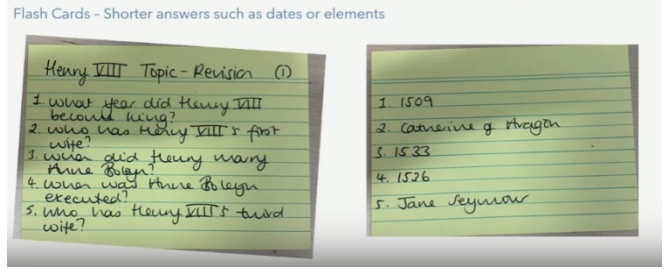 Flash Cards - Shorter answers such as dates or elements
Henry VIII Topic - Revision (1)
1. What year did Henry VIII
become king?
2. who was Henry VIII's first
wife?
3. when did Henry marry
Anne Boleyn?
4. when was Anne Boleyn
executed?
5. who was Henry VIII's third
wife?
1. 1509
2. Catherine of Aragon
3. 1533
4. 1536
5. Jane Seymour